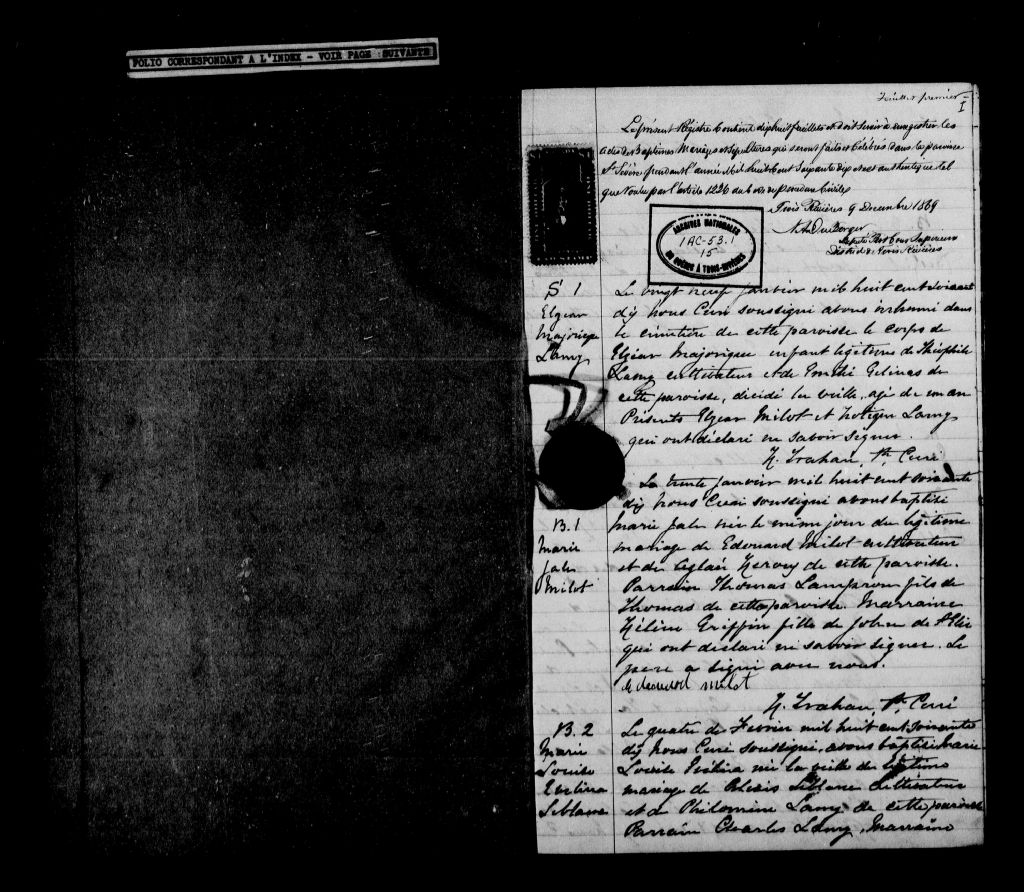 FOLIO CORRESPONDANT A L'INDEX - VOIR PAGE SUIVANTE
Feuillet premier
1
Le présent Régistre contient dixhuit feuillets et doit servir à enregistrer les
actes des Baptêmes Mariages et Sépultures qui seront faits et célébrés dans la paroisse
St Sévère pendant l'année Mil huit Cent Soixante dix et est authentiqué tel
que voulu par l'article 1236 du Code de procédure Civile
Trois Rivières 9 Decembre 1869
Député Prot Cour Supérieure
District de Trois Rivières
ARCHIVES NATIONALES
1AC-53.1
15
DU QUÉBEC À TROIS-RIVIÈRES
S 1
Elzear
Majorique
Lamy
Le vingt neuf janvier mil huit cent soixante
dix nous Curé soussigné avons inhumé dans
le cimetière de cette paroisse le corps de
Elzéar Majorique enfant légitime de Théophile
Lamy cultivateur et de Emélie Gelinas de
cette paroisse, décédé la veille, agé de un an
Présents Elzear Milot et Lamy
qui ont déclaré ne savoir signer.
N. Trahan, Ptr Curé
B. 1
Marie
Milot
Le trente janvier mil huit cent soixante
dix nous Curé soussigné avons baptisé
Marie née le même jour du légitime
mariage de Edouard Milot cultivateur
et de Aglaé Hervey de cette paroisse.
Parrain Thomas Lampron fils de
Thomas de cette paroisse. Marraine
Hélène Griffin fille de John de St Elie
qui ont déclaré ne savoir signer. Le
père a signé avec nous.
Edouard Milot
N. Trahan, Ptr Curé
B. 2
Marie
Louise
Leblanc
Le quatre de Fevrier mil huit cent soixante
dix nous Curé soussigné, avons baptisé Marie
Louise née la veille du légitime
mariage de Alexis Leblanc Cultivateur
et de Philomène Lamy de cette paroisse
Parrain Charles Lamy, Marraine